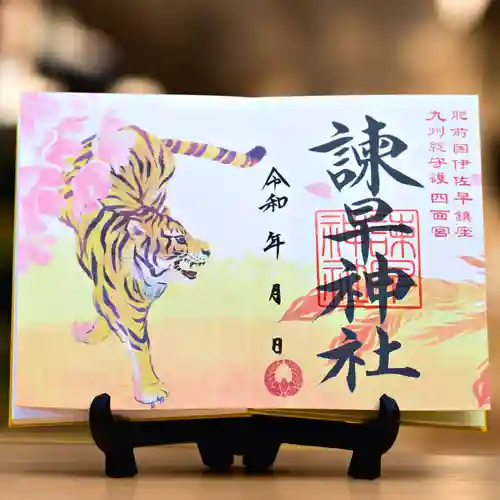 肥前国伊佐早鎮座
九州総守護四面宮
諫早神社
諫早神社
令和 年 月 日